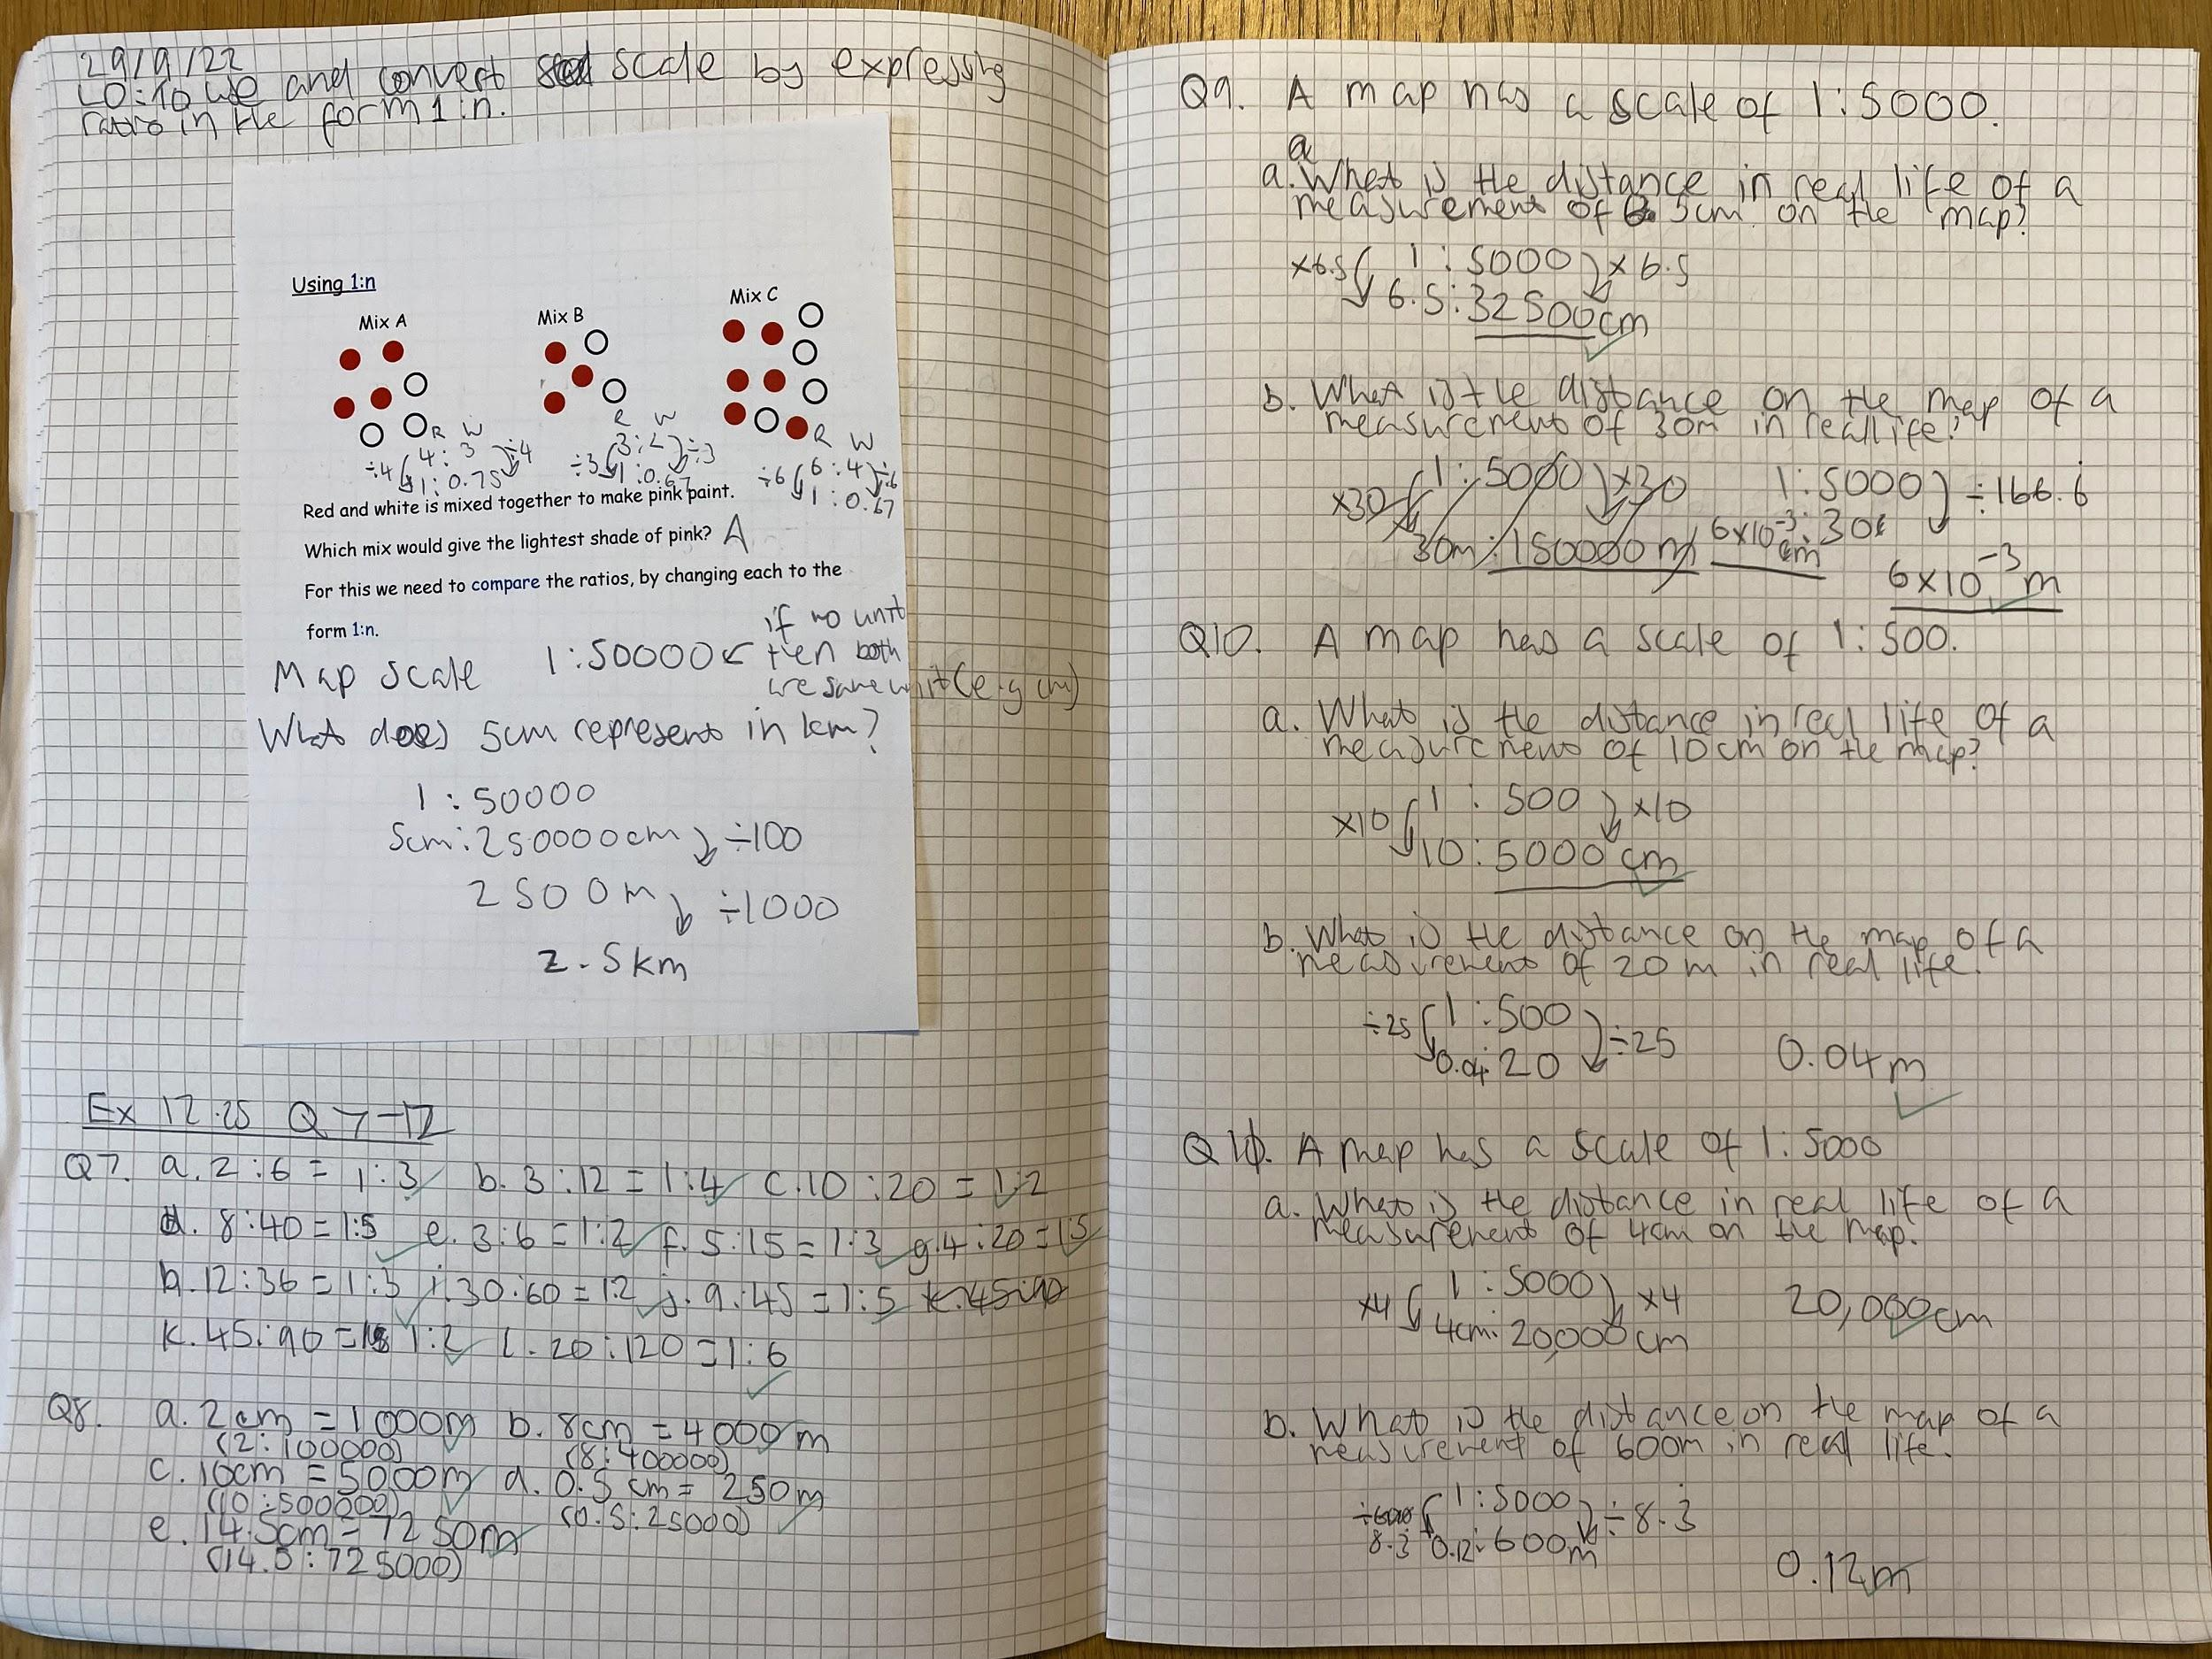 29/9/22
LO: To use and convert scale by expressing
ratio in the form 1:n.
Using 1:n
Mix A
Mix B
Mix C
R W
÷4 4 : 3 ÷4
1 : 0.75
R W
÷3 3 : 2 ÷3
1 : 0.67
R W
÷6 6 : 4 ÷6
1 : 0.67
Red and white is mixed together to make pink paint.
Which mix would give the lightest shade of pink? A
For this we need to compare the ratios, by changing each to the
form 1:n.
Map scale 1:50000 ← if no unit
then both
are same unit (e.g cm)
What does 5cm represent in km?
1 : 50000
5cm : 250000cm ÷100
2500m ÷1000
2.5km
Ex 12.25 Q7-12
Q7. a. 2:6 = 1:3 b. 3:12 = 1:4 c. 10:20 = 1:2
d. 8:40 = 1:5 e. 3:6 = 1:2 f. 5:15 = 1:3 g. 4:20 = 1:5
h. 12:36 = 1:3 i. 30:60 = 1:2 j. 9:45 = 1:5 k. 45:90
k. 45:90 = 1:2 l. 20:120 = 1:6
Q8. a. 2cm = 1000m b. 8cm = 4000m
(2:100000) (8:400000)
c. 10cm = 5000m d. 0.5cm = 250m
(10:500000) (0.5:25000)
e. 14.5cm = 7250m
(14.5:725000)
Q9. A map has a scale of 1:5000.
a
a. What is the distance in real life of a
measurement of 6.5cm on the map?
×6.5 1 : 5000 ×6.5
6.5 : 32500cm
b. What is the distance on the map of a
measurement of 30m in real life?
×30 1 : 5000 ×30 1:5000 ÷166.6̇
30m : 150000m 6×10⁻³ : 30
cm
6×10⁻³m
Q10. A map has a scale of 1:500.
a. What is the distance in real life of a
measurement of 10cm on the map?
×10 1 : 500 ×10
10 : 5000cm
b. What is the distance on the map of a
measurement of 20m in real life.
÷25 1 : 500 ÷25
0.04 : 20 0.04m
Q11. A map has a scale of 1:5000
a. What is the distance in real life of a
measurement of 4cm on the map.
×4 1 : 5000 ×4 20,000cm
4cm : 20,000cm
b. What is the distance on the map of a
measurement of 600m in real life.
÷ 1 : 5000 ÷8.3̇
8.3̇ 0.12 : 600m
0.12m